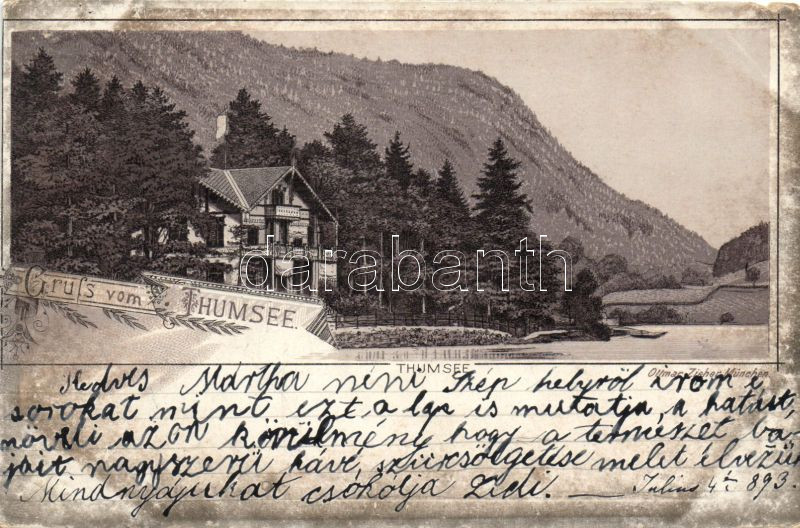 darabanth
Gruſs vom THUMSEE.
THUMSEE
Ottmar Zieher, München.
Kedves Mártha néni Szép helyről irom e
sorokat mint ezt a lap is mutatja, a hatást
növeli azon körülmény hogy a természet bá-
jait nagyszerű kávé szürcsölgetése mellett élvezük
Mindnyájukat csokólja Zidi. — Julius 4én 893.